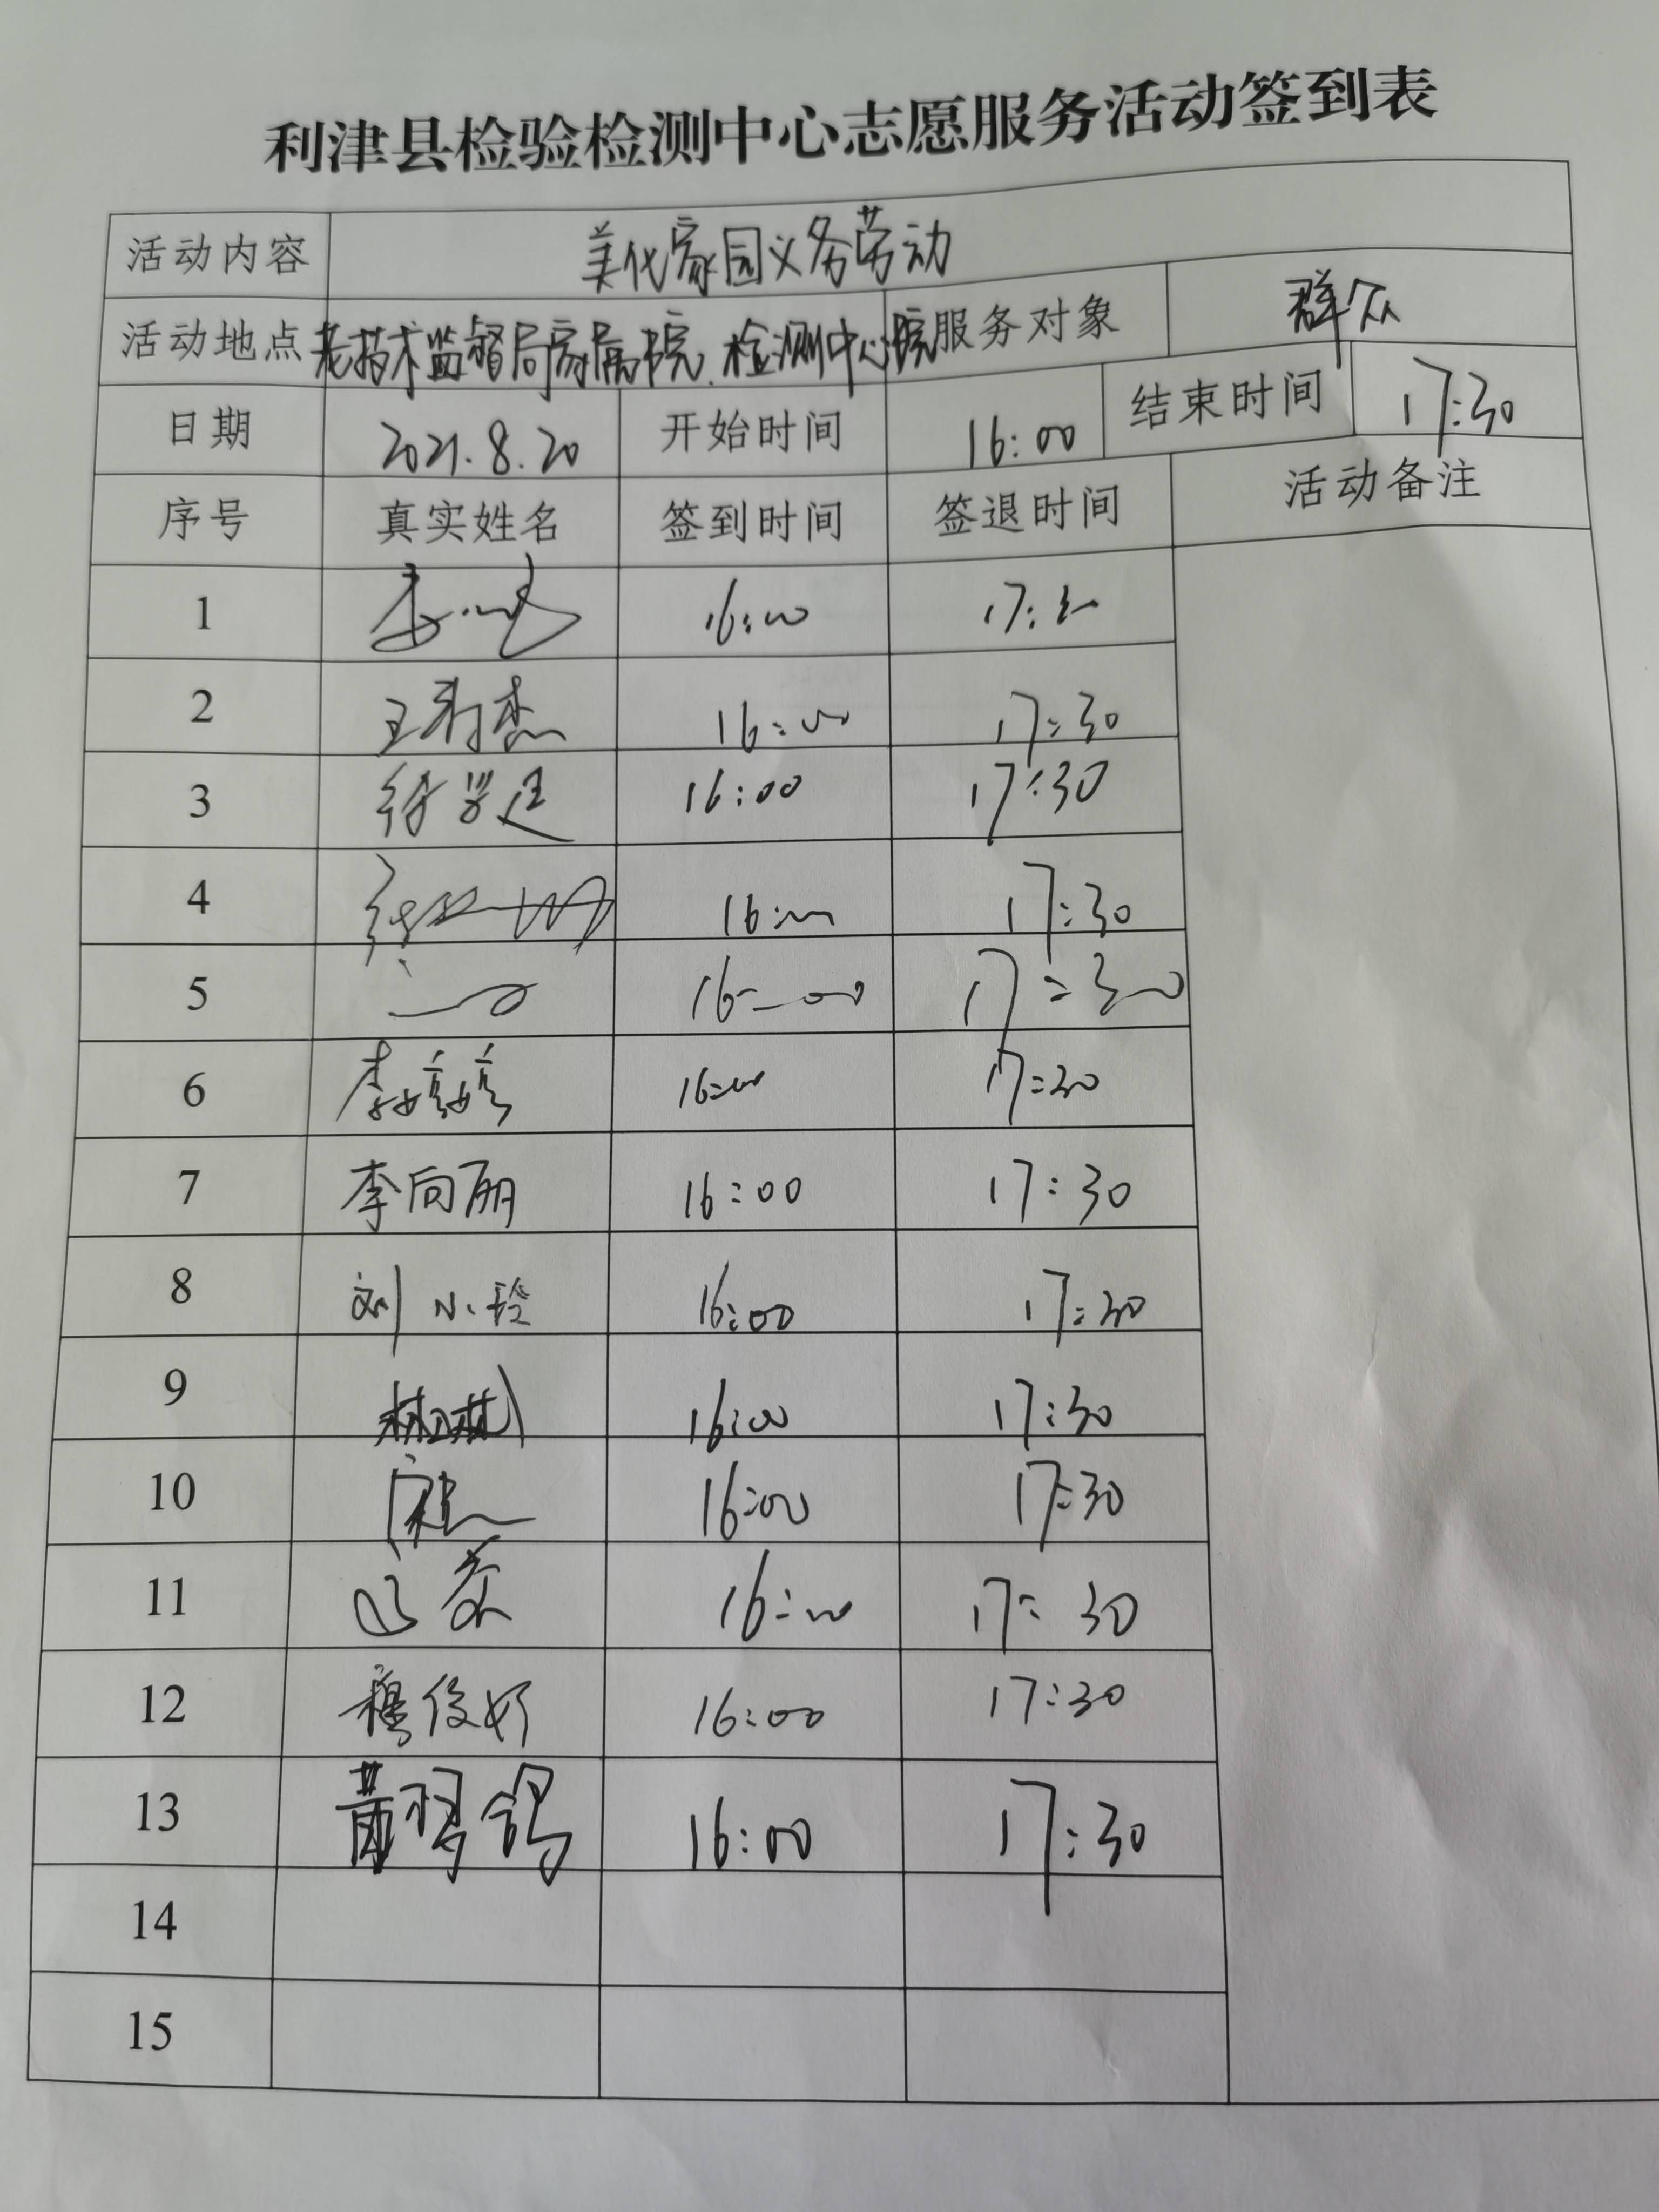 利津县检验检测中心志愿服务活动签到表
活动内容 美化家园义务劳动
活动地点 老技术监督局家属院、检测中心院 服务对象 群众
日期 2021.8.20 开始时间 16:00 结束时间 17:30
序号 真实姓名 签到时间 签退时间 活动备注
1 16:00 17:30
2 王 杰 16:00 17:30
3 徐 16:00 17:30
4 16:00 17:30
5 16:00 17:30
6 李婷婷 16:00 17:30
7 李向丽 16:00 17:30
8 刘小玲 16:00 17:30
9 16:00 17:30
10 16:00 17:30
11 16:00 17:30
12 穆俊好 16:00 17:30
13 黄 鸽 16:00 17:30
14
15